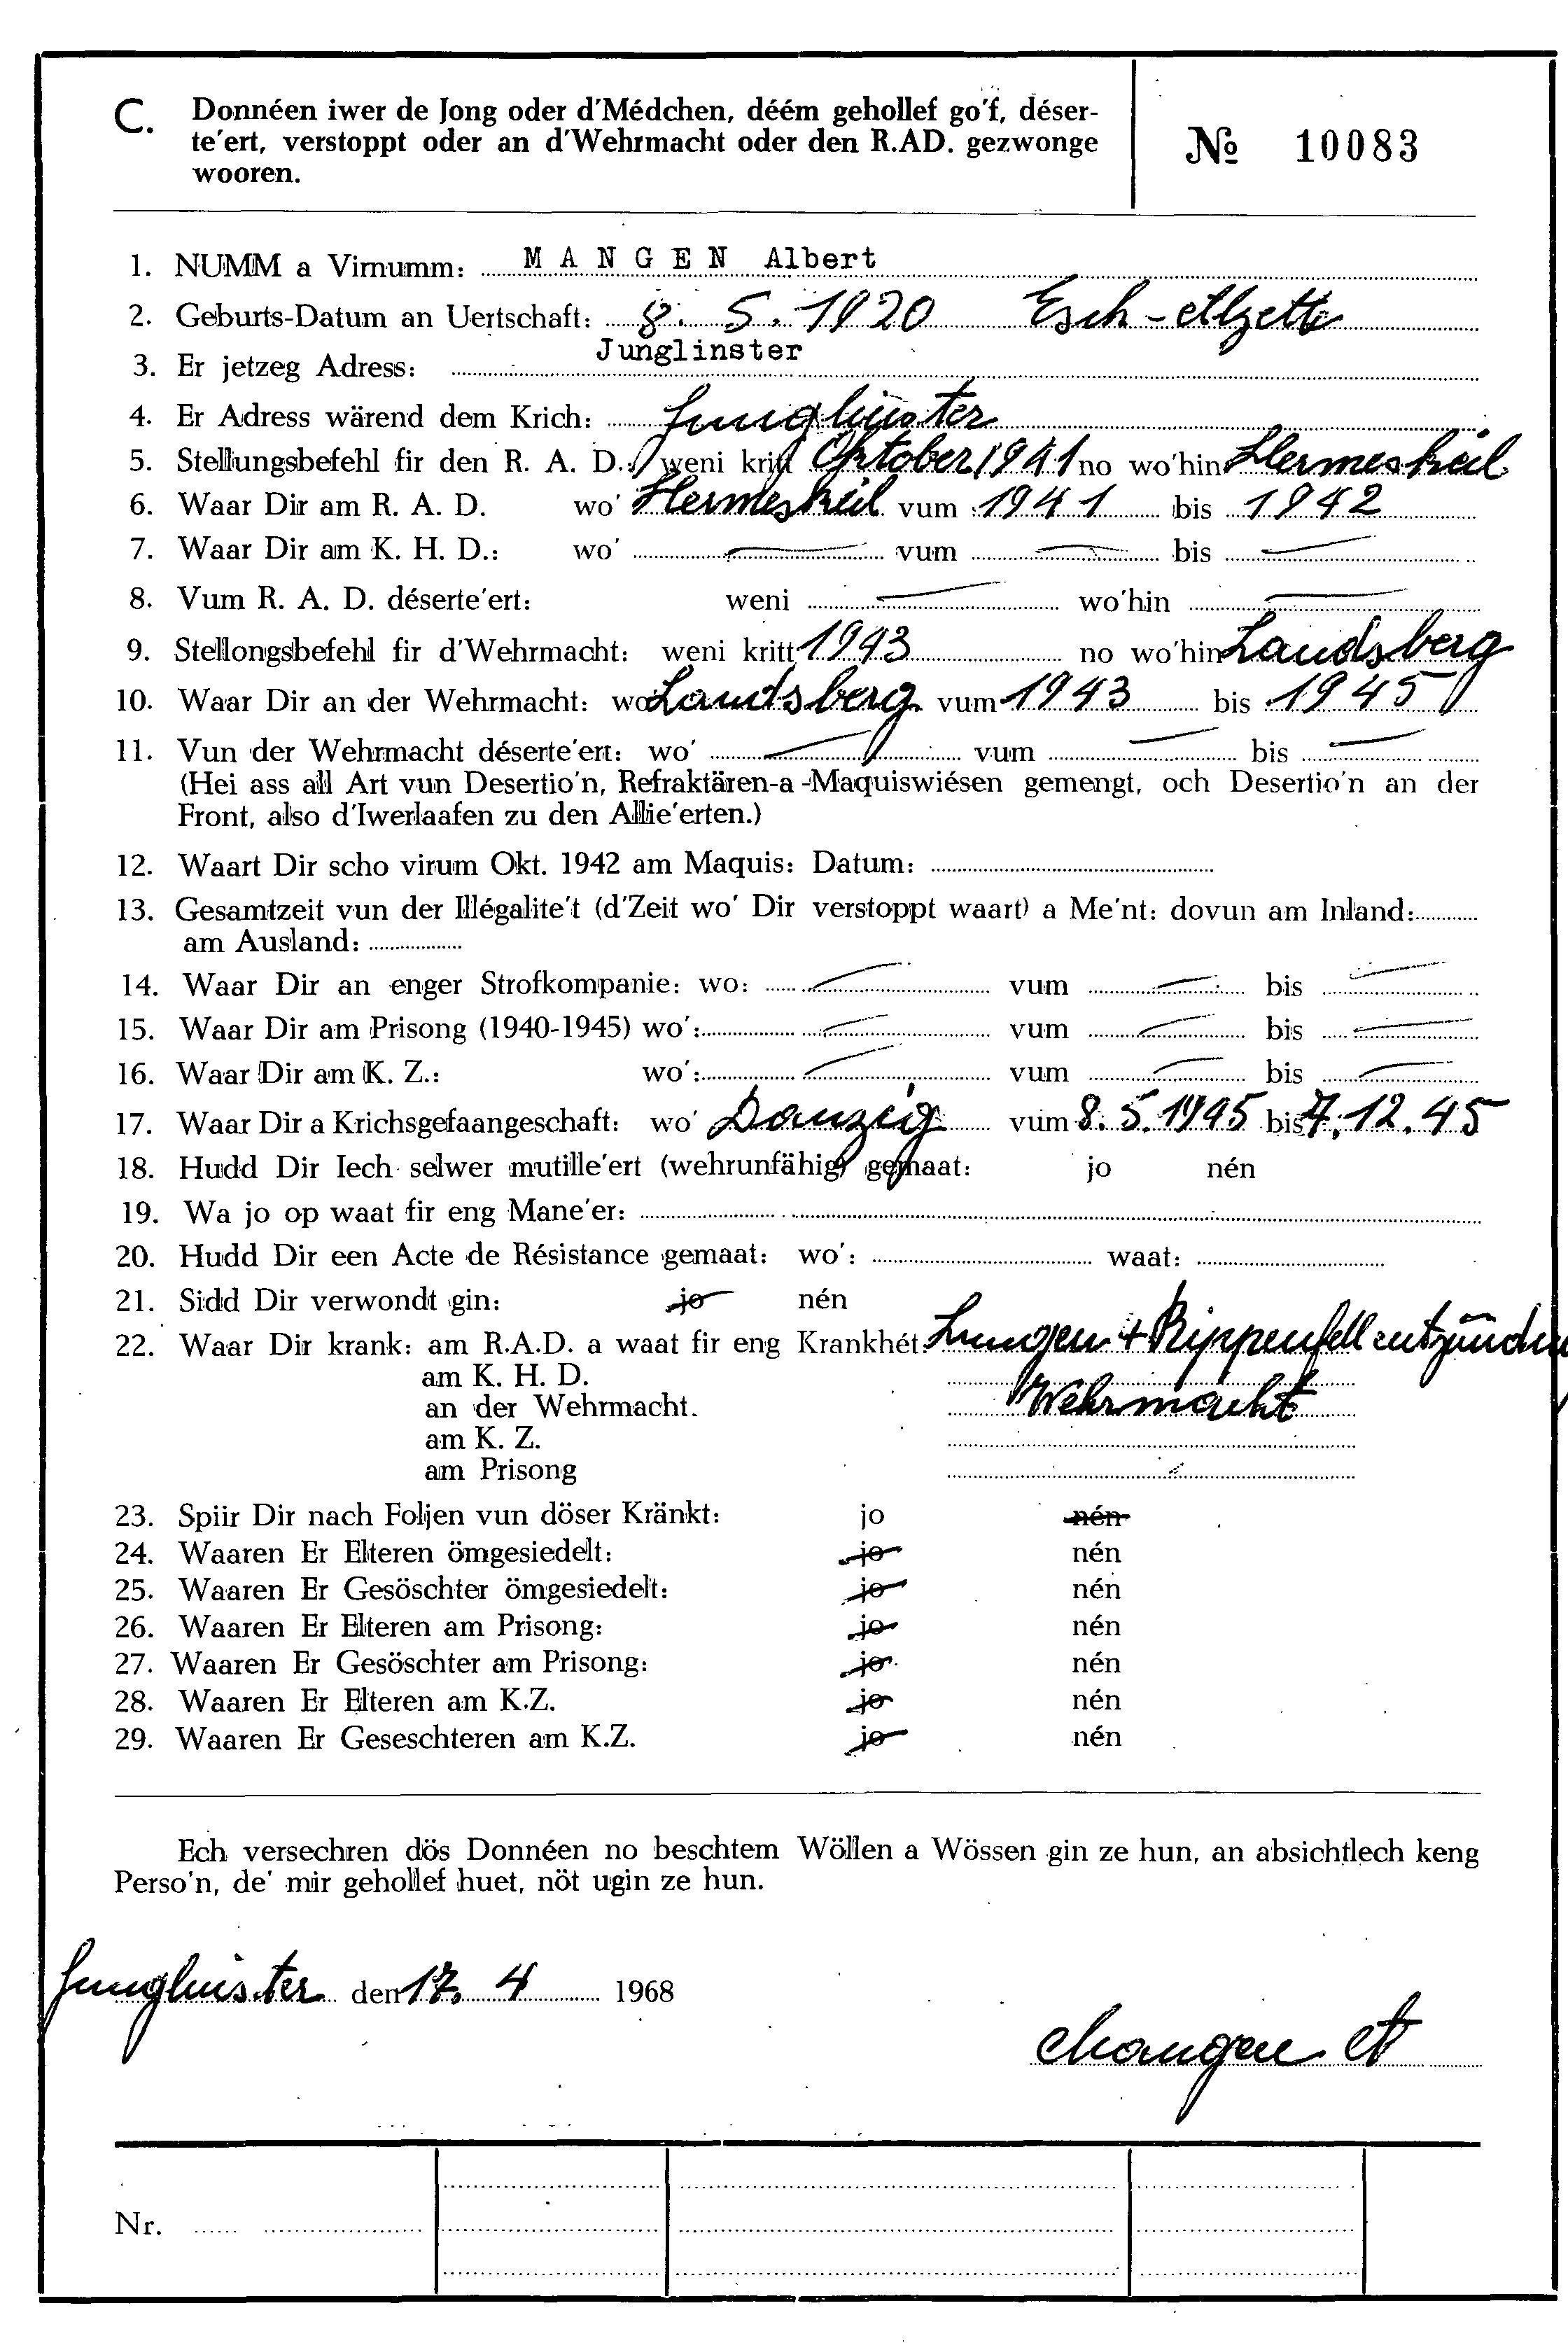 C. Donnéen iwer de Jong oder d'Médchen, déém gehollef go'f, déser-
te'ert, verstoppt oder an d'Wehrmacht oder den R.AD. gezwonge
wooren.
№ 10083
1. NUMM a Virnumm: MANGEN Albert
2. Geburts-Datum an Uertschaft: 8. 5. 1920 Esch-Alzette
3. Er jetzeg Adress: Junglinster
4. Er Adress wärend dem Krich: Junglinster
5. Stellungsbefehl fir den R. A. D.: weni kritt Oktober 1941 no wo'hin Hermeskeil
6. Waar Dir am R. A. D. wo' Hermeskeil vum 1941 bis 1942
7. Waar Dir am K. H. D.: wo' — vum — bis —
8. Vum R. A. D. déserte'ert: weni — wo'hin —
9. Stellongsbefehl fir d'Wehrmacht: weni kritt 1943 no wo'hin Landsberg
10. Waar Dir an der Wehrmacht: wo Landsberg vum 1943 bis 1945
11. Vun der Wehrmacht déserte'ert: wo' — vum — bis —
(Hei ass all Art vun Desertio'n, Refraktären-a -Maquiswiésen gemengt, och Desertio'n an der
Front, also d'Iwerlaafen zu den Allie'erten.)
12. Waart Dir scho virum Okt. 1942 am Maquis: Datum:
13. Gesamtzeit vun der Illégalite't (d'Zeit wo' Dir verstoppt waart) a Me'nt: dovun am Inland:
am Ausland:
14. Waar Dir an enger Strofkompanie: wo: — vum — bis —
15. Waar Dir am Prisong (1940-1945) wo': — vum — bis —
16. Waar Dir am K. Z.: wo': — vum — bis —
17. Waar Dir a Krichsgefaangeschaft: wo' Danzig vum 8. 5. 1945 bis 7. 12. 45
18. Hudd Dir Iech selwer mutille'ert (wehrunfähig) gemaat: jo nén
19. Wa jo op waat fir eng Mane'er:
20. Hudd Dir een Acte de Résistance gemaat: wo': waat:
21. Sidd Dir verwondt gin: jo nén
22. Waar Dir krank: am R.A.D. a waat fir eng Krankhét: Lungen + Rippenfellentzündu
am K. H. D.
an der Wehrmacht. Wehrmacht
am K. Z.
am Prisong
23. Spiir Dir nach Foljen vun döser Kränkt: jo nén
24. Waaren Er Elteren ömgesiedelt: jo nén
25. Waaren Er Gesöschter ömgesiedelt: jo nén
26. Waaren Er Elteren am Prisong: jo nén
27. Waaren Er Gesöschter am Prisong: jo nén
28. Waaren Er Elteren am K.Z. jo nén
29. Waaren Er Geseschteren am K.Z. jo nén
Ech versechren dös Donnéen no beschtem Wöllen a Wössen gin ze hun, an absichtlech keng
Perso'n, de' mir gehollef huet, nöt ugin ze hun.
Junglinster den 17. 4 1968
Mangen A
Nr.